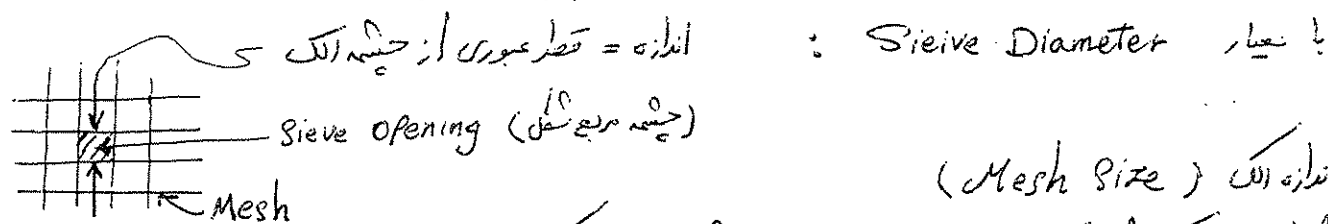 با معیار Sieive Diameter : اندازه = قطر عبوری از چشمه الک
Sieve opening (چشمه مربع شکل)
اندازه الک (Mesh Size)
Mesh